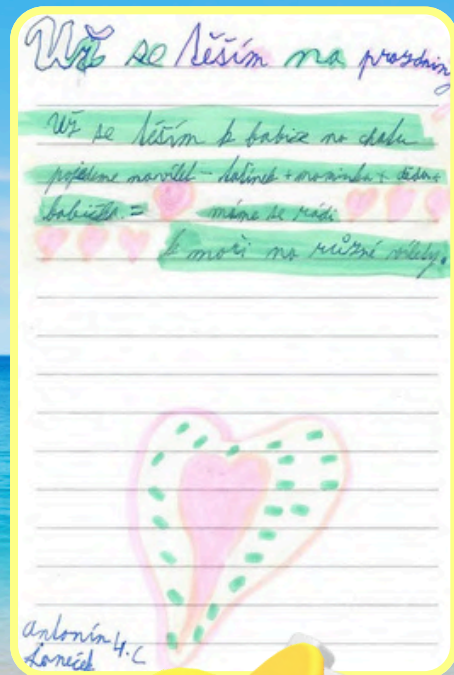 Už se těším na prázdnin
Už se těším k babice na chatu
pojedeme navštívit - tatínek + maminka + děda +
babička = máme se rádi
k moři na různé výlety.
Antonín 4.C